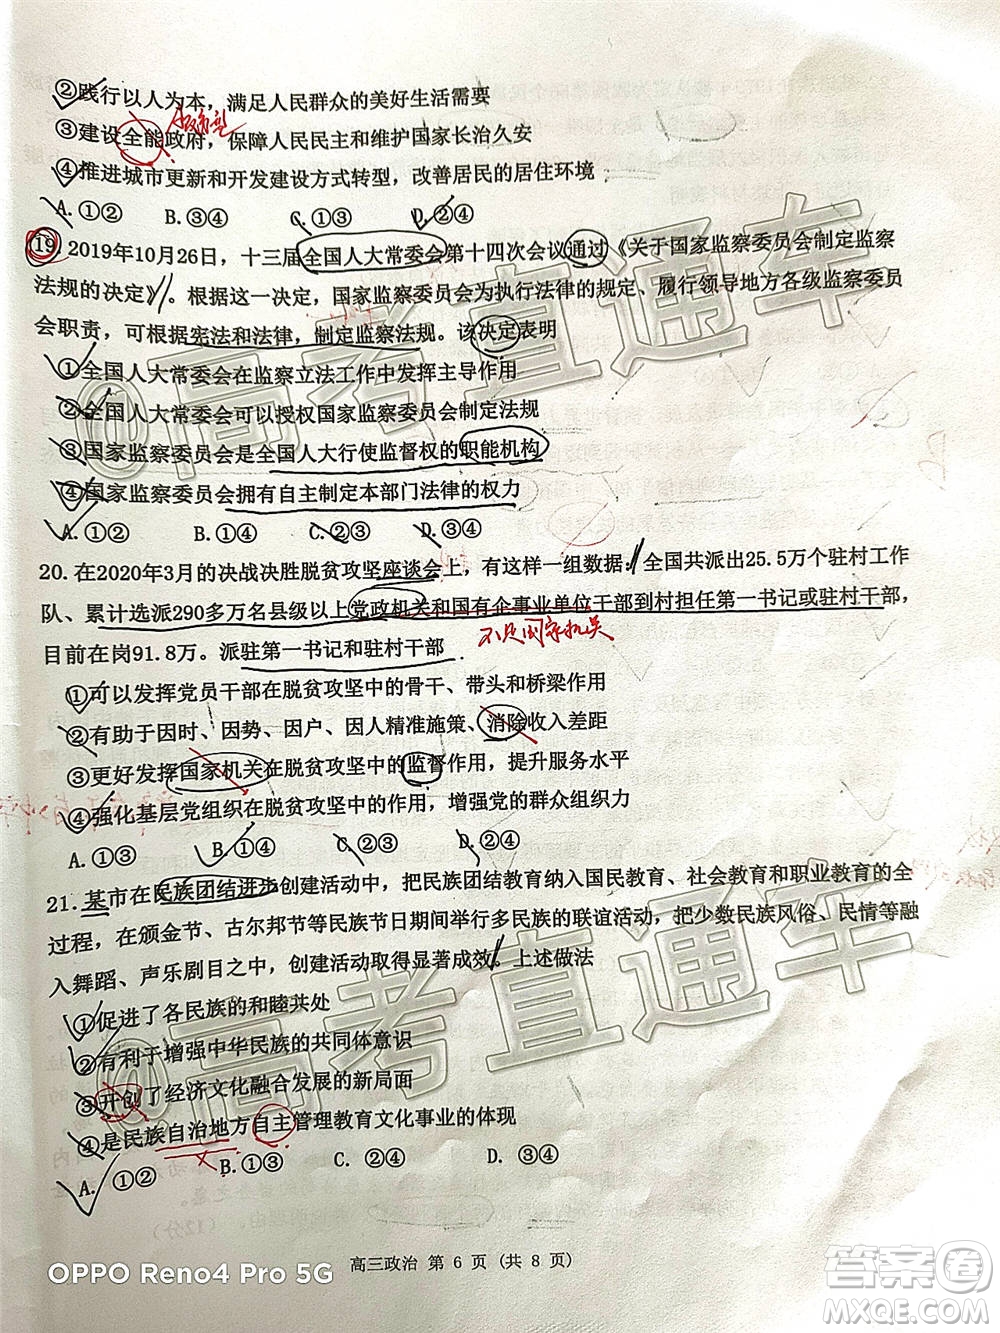 ②践行以人为本，满足人民群众的美好生活需要
③建设全能政府，保障人民民主和维护国家长治久安
④推进城市更新和开发建设方式转型，改善居民的居住环境
A. ①② B. ③④ C. ①③ D. ②④
19. 2019年10月26日，十三届全国人大常委会第十四次会议通过《关于国家监察委员会制定监察
法规的决定》。根据这一决定，国家监察委员会为执行法律的规定、履行领导地方各级监察委员
会职责，可根据宪法和法律，制定监察法规。该决定表明
①全国人大常委会在监察立法工作中发挥主导作用
②全国人大常委会可以授权国家监察委员会制定法规
③国家监察委员会是全国人大行使监督权的职能机构
④国家监察委员会拥有自主制定本部门法律的权力
A. ①② B. ①④ C. ②③ D. ③④
20. 在2020年3月的决战决胜脱贫攻坚座谈会上，有这样一组数据：全国共派出25.5万个驻村工作
队、累计选派290多万名县级以上党政机关和国有企事业单位干部到村担任第一书记或驻村干部，
不是国家机关
目前在岗91.8万。派驻第一书记和驻村干部
①可以发挥党员干部在脱贫攻坚中的骨干、带头和桥梁作用
②有助于因时、因势、因户、因人精准施策，消除收入差距
③更好发挥国家机关在脱贫攻坚中的监督作用，提升服务水平
④强化基层党组织在脱贫攻坚中的作用，增强党的群众组织力
A. ①③ B. ①④ C. ②③ D. ②④
21. 某市在民族团结进步创建活动中，把民族团结教育纳入国民教育、社会教育和职业教育的全
过程，在颁金节、古尔邦节等民族节日期间举行多民族的联谊活动，把少数民族风俗、民情等融
入舞蹈、声乐剧目之中，创建活动取得显著成效。上述做法
①促进了各民族的和睦共处
②有利于增强中华民族的共同体意识
③开创了经济文化融合发展的新局面
④是民族自治地方自主管理教育文化事业的体现
A. ①② B. ①③ C. ②④ D. ③④
高三政治 第 6 页 (共 8 页)
OPPO Reno4 Pro 5G
@高考直通车
@高考直通车
答案圈
MXQE.COM